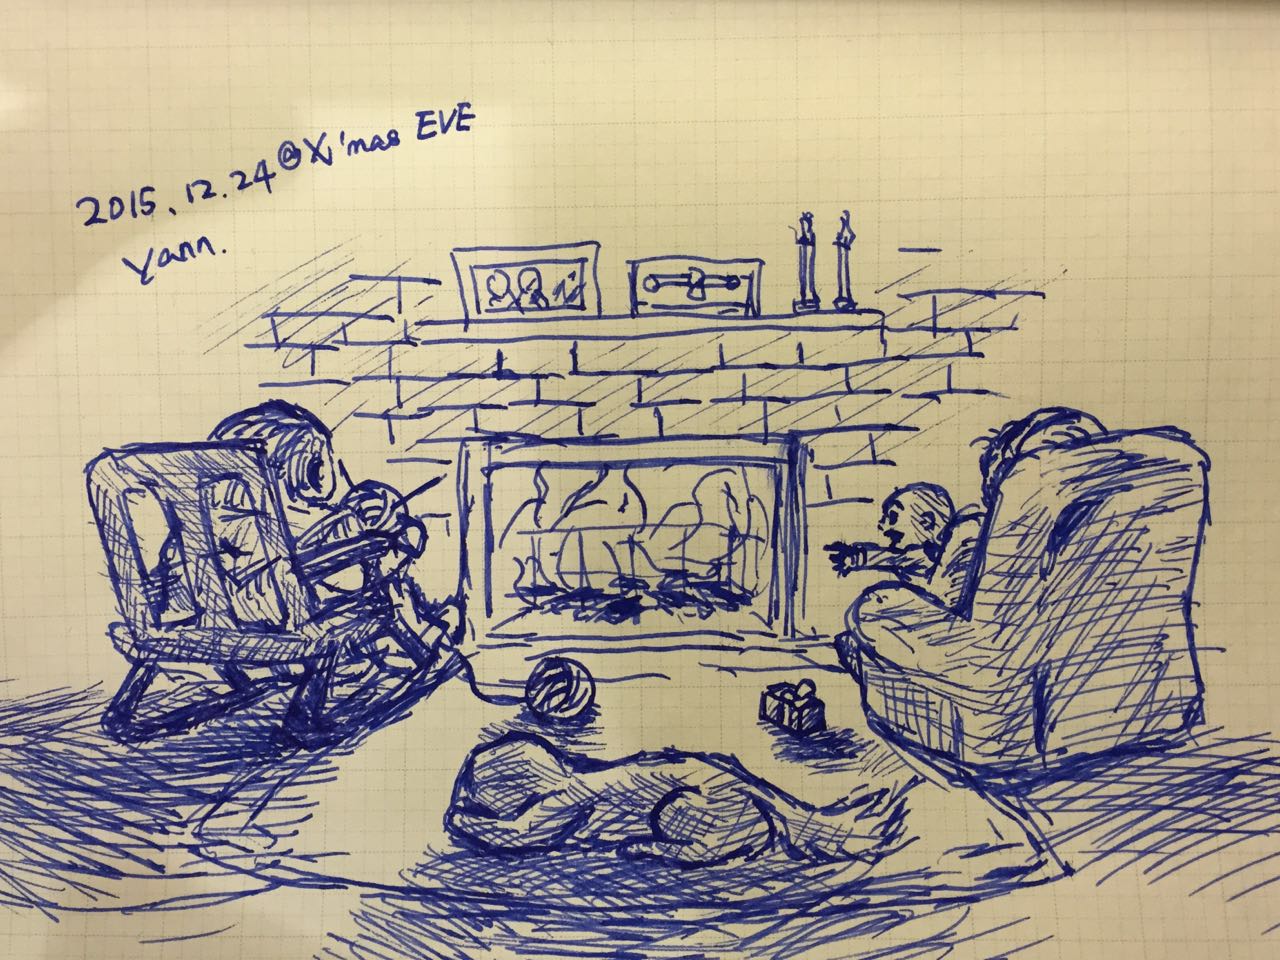 2015.12.24@X'mas EVE
Yann.